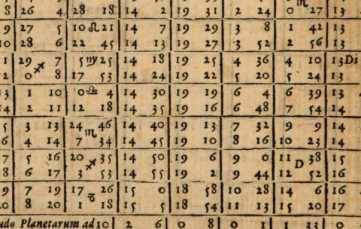 8 26 4 28 18 14 2 19 31 2 24 0 ♏ 27 13
9 27 5 10 ♌ 21 14 7 19 29 3 8 1 42 13
10 28 6 22 45 14 13 19 27 3 52 2 56 13
1 29 ♐ 7 5 ♍ 25 14 18 19 25 4 36 4 10 13 Di
2 0 8 17 53 14 24 19 22 5 20 5 24 13
3 1 10 0 ♎ 4 14 30 19 19 6 4 6 39 13
4 2 11 12 18 14 35 19 16 6 48 7 54 14
5 3 13 24 ♏ 46 14 40 19 13 7 32 9 9 14
6 4 14 7 34 14 45 19 10 8 16 10 23 14
7 5 16 20 ♐ 35 14 50 19 6 9 0 11 D 38 15
8 6 17 3 53 14 55 19 2 9 44 12 52 16
9 7 19 17 ♑ 26 15 0 18 58 10 28 14 6 16
0 8 20 1 18 15 5 18 54 11 13 15 20 17
udo Planetarum ad 10 2 6 0 8 0 1 1 33 0